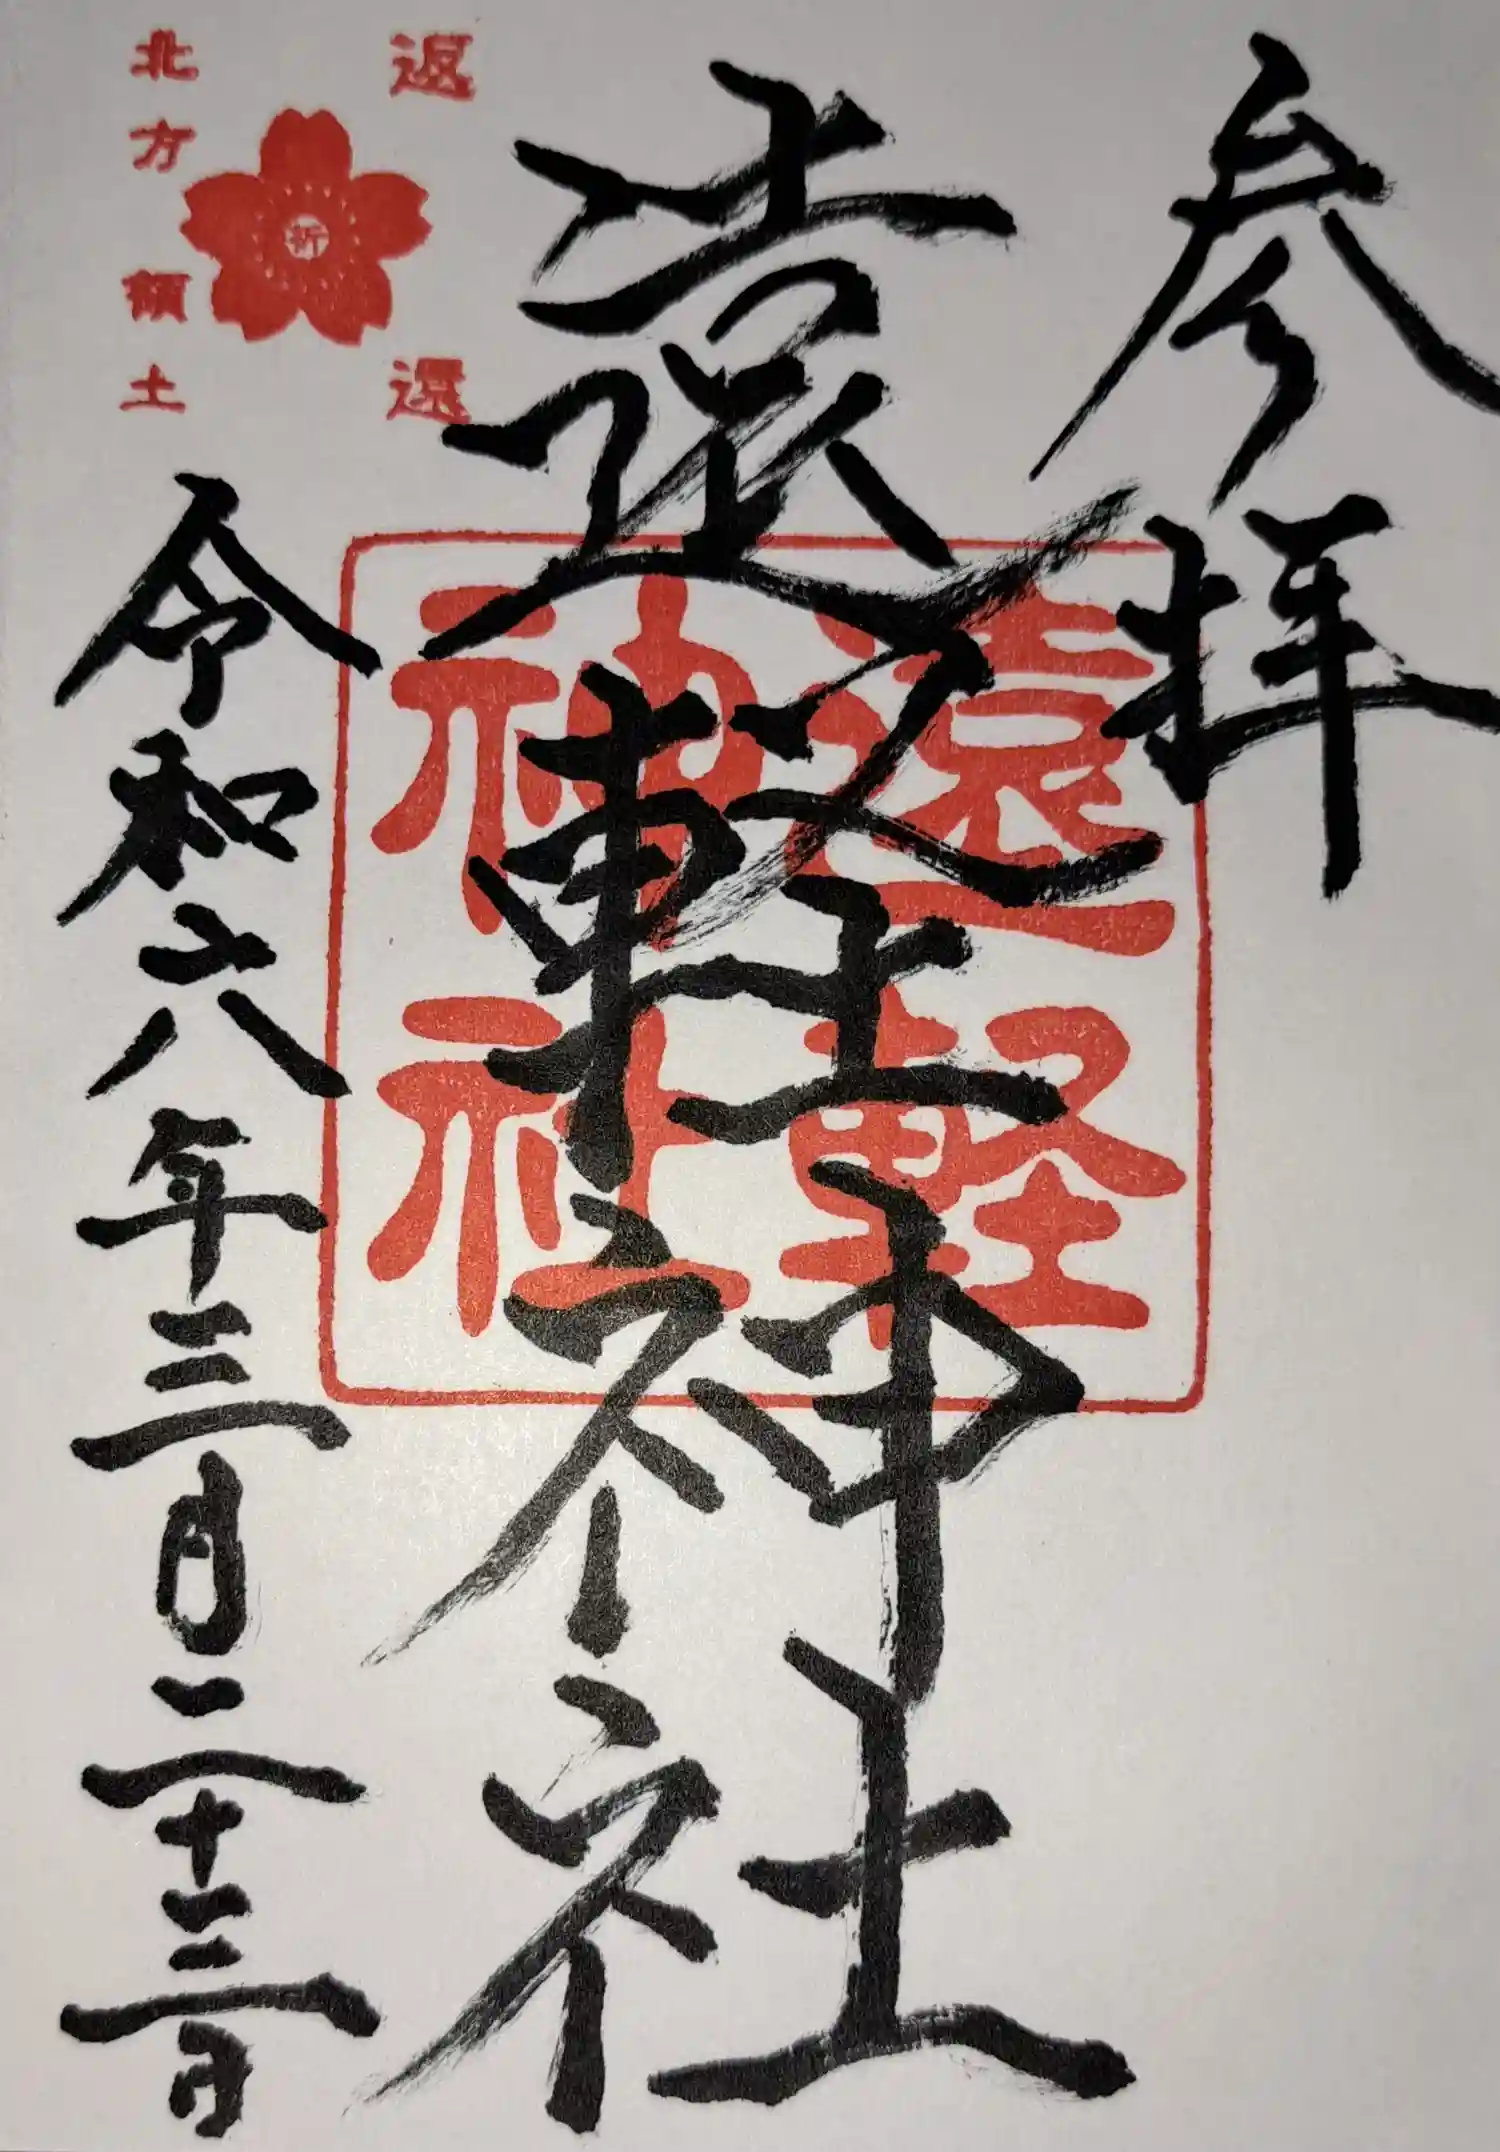 参拝
遠軽神社
遠軽
神社
返還
祈
北方領土
令和六年三月二十三日